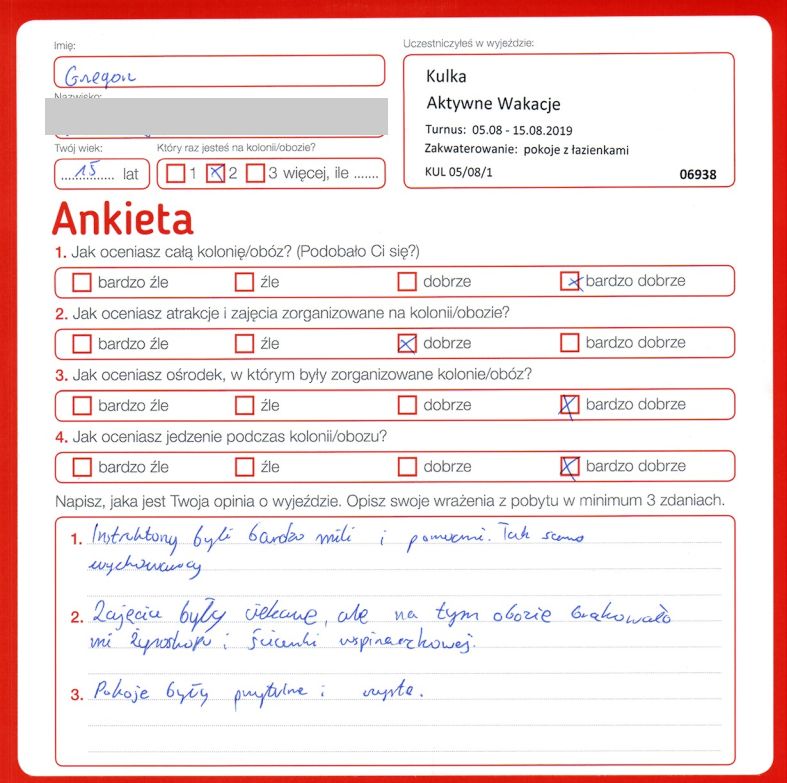 Imię:
Uczestniczyłeś w wyjeździe:
Gregor
Kulka
Aktywne Wakacje
Turnus: 05.08 - 15.08.2019
Zakwaterowanie: pokoje z łazienkami
KUL 05/08/1 06938
Nazwisko:
Twój wiek: Który raz jesteś na kolonii/obozie?
15 lat 1 2 3 więcej, ile .......
Ankieta
1. Jak oceniasz całą kolonię/obóz? (Podobało Ci się?)
bardzo źle źle dobrze bardzo dobrze
2. Jak oceniasz atrakcje i zajęcia zorganizowane na kolonii/obozie?
bardzo źle źle dobrze bardzo dobrze
3. Jak oceniasz ośrodek, w którym były zorganizowane kolonie/obóz?
bardzo źle źle dobrze bardzo dobrze
4. Jak oceniasz jedzenie podczas kolonii/obozu?
bardzo źle źle dobrze bardzo dobrze
Napisz, jaka jest Twoja opinia o wyjeździe. Opisz swoje wrażenia z pobytu w minimum 3 zdaniach.
1. Instruktorzy byli bardzo mili i pomocni. Tak samo
wychowawcy
2. Zajęcia były ciekawe, ale na tym obozie brakowało
mi żyroskopu i ścianki wspinaczkowej.
3. Pokoje były przytulne i czyste.